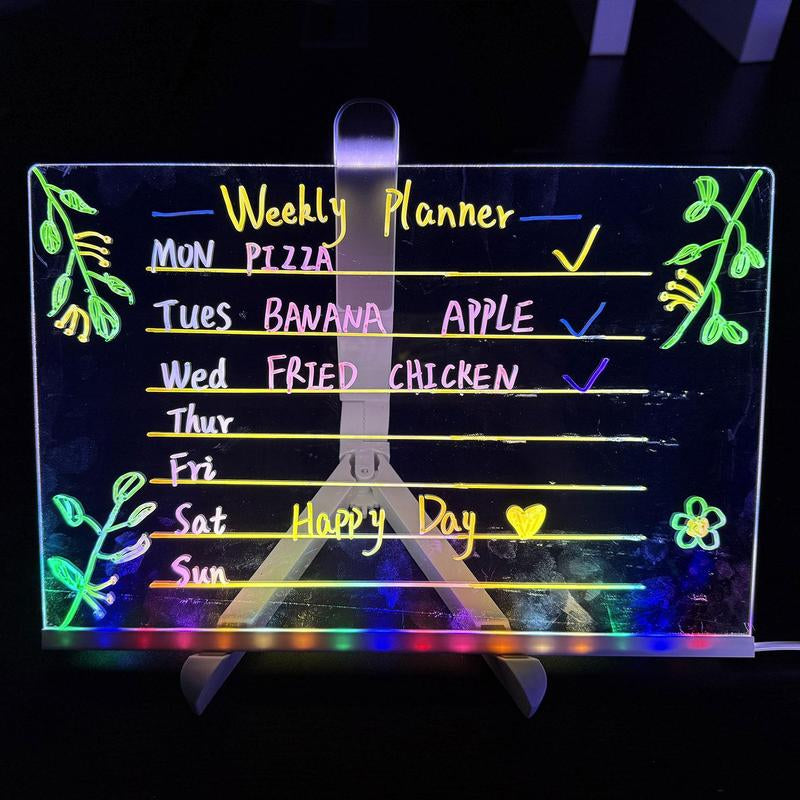 Weekly Planner
MON PIZZA ✓
Tues BANANA APPLE ✓
Wed FRIED CHICKEN ✓
Thur
Fri
Sat Happy Day
Sun